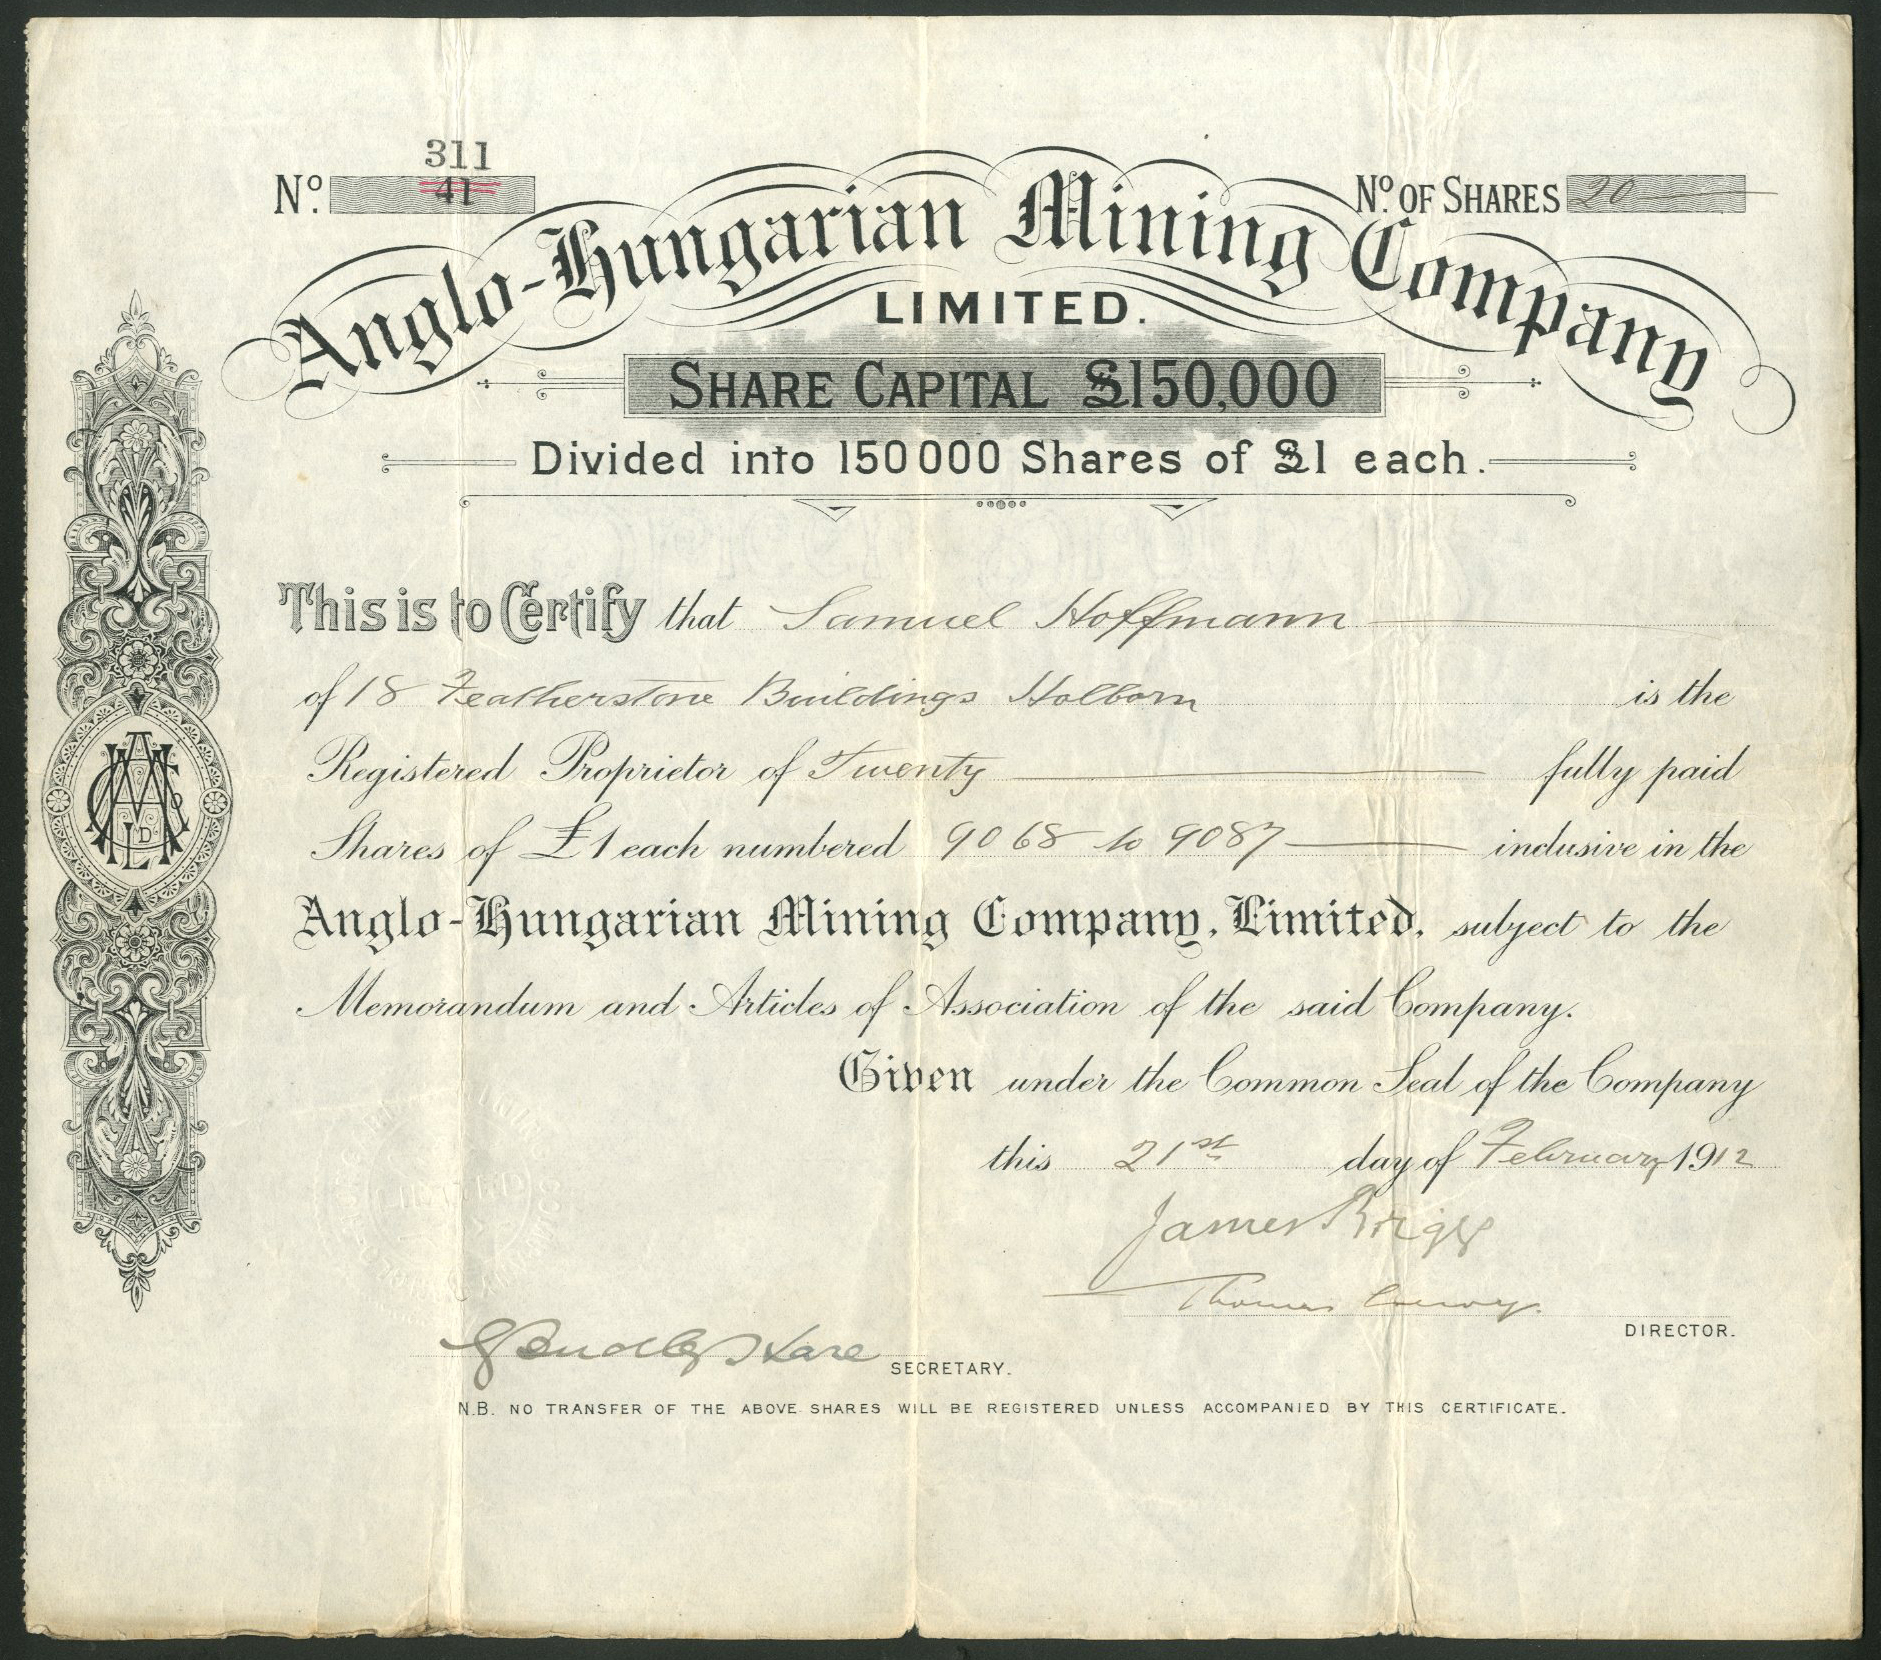 311
Nº. 41
Nº. OF SHARES 20
Anglo-Hungarian Mining Company
LIMITED.
SHARE CAPITAL £150,000
Divided into 150000 Shares of £1 each.
This is to Certify that Samuel Hoffmann
of 18 Featherstone Buildings Holborn is the
Registered Proprietor of Twenty fully paid
Shares of £1 each numbered 9068 to 9087 inclusive in the
Anglo-Hungarian Mining Company, Limited, subject to the
Memorandum and Articles of Association of the said Company.
Given under the Common Seal of the Company
this 21st day of February 1912
James Briggs
Thomas
DIRECTOR.
SECRETARY.
N.B. NO TRANSFER OF THE ABOVE SHARES WILL BE REGISTERED UNLESS ACCOMPANIED BY THIS CERTIFICATE.